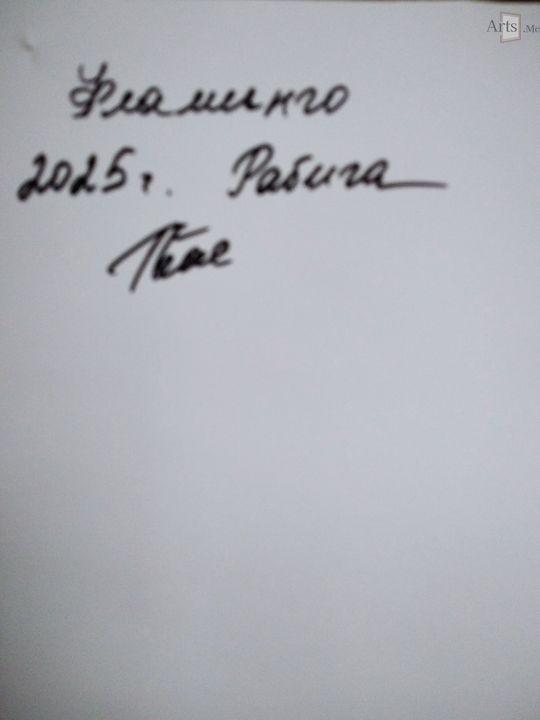 Arts .Me
Фламинго
2025 г. Рабига